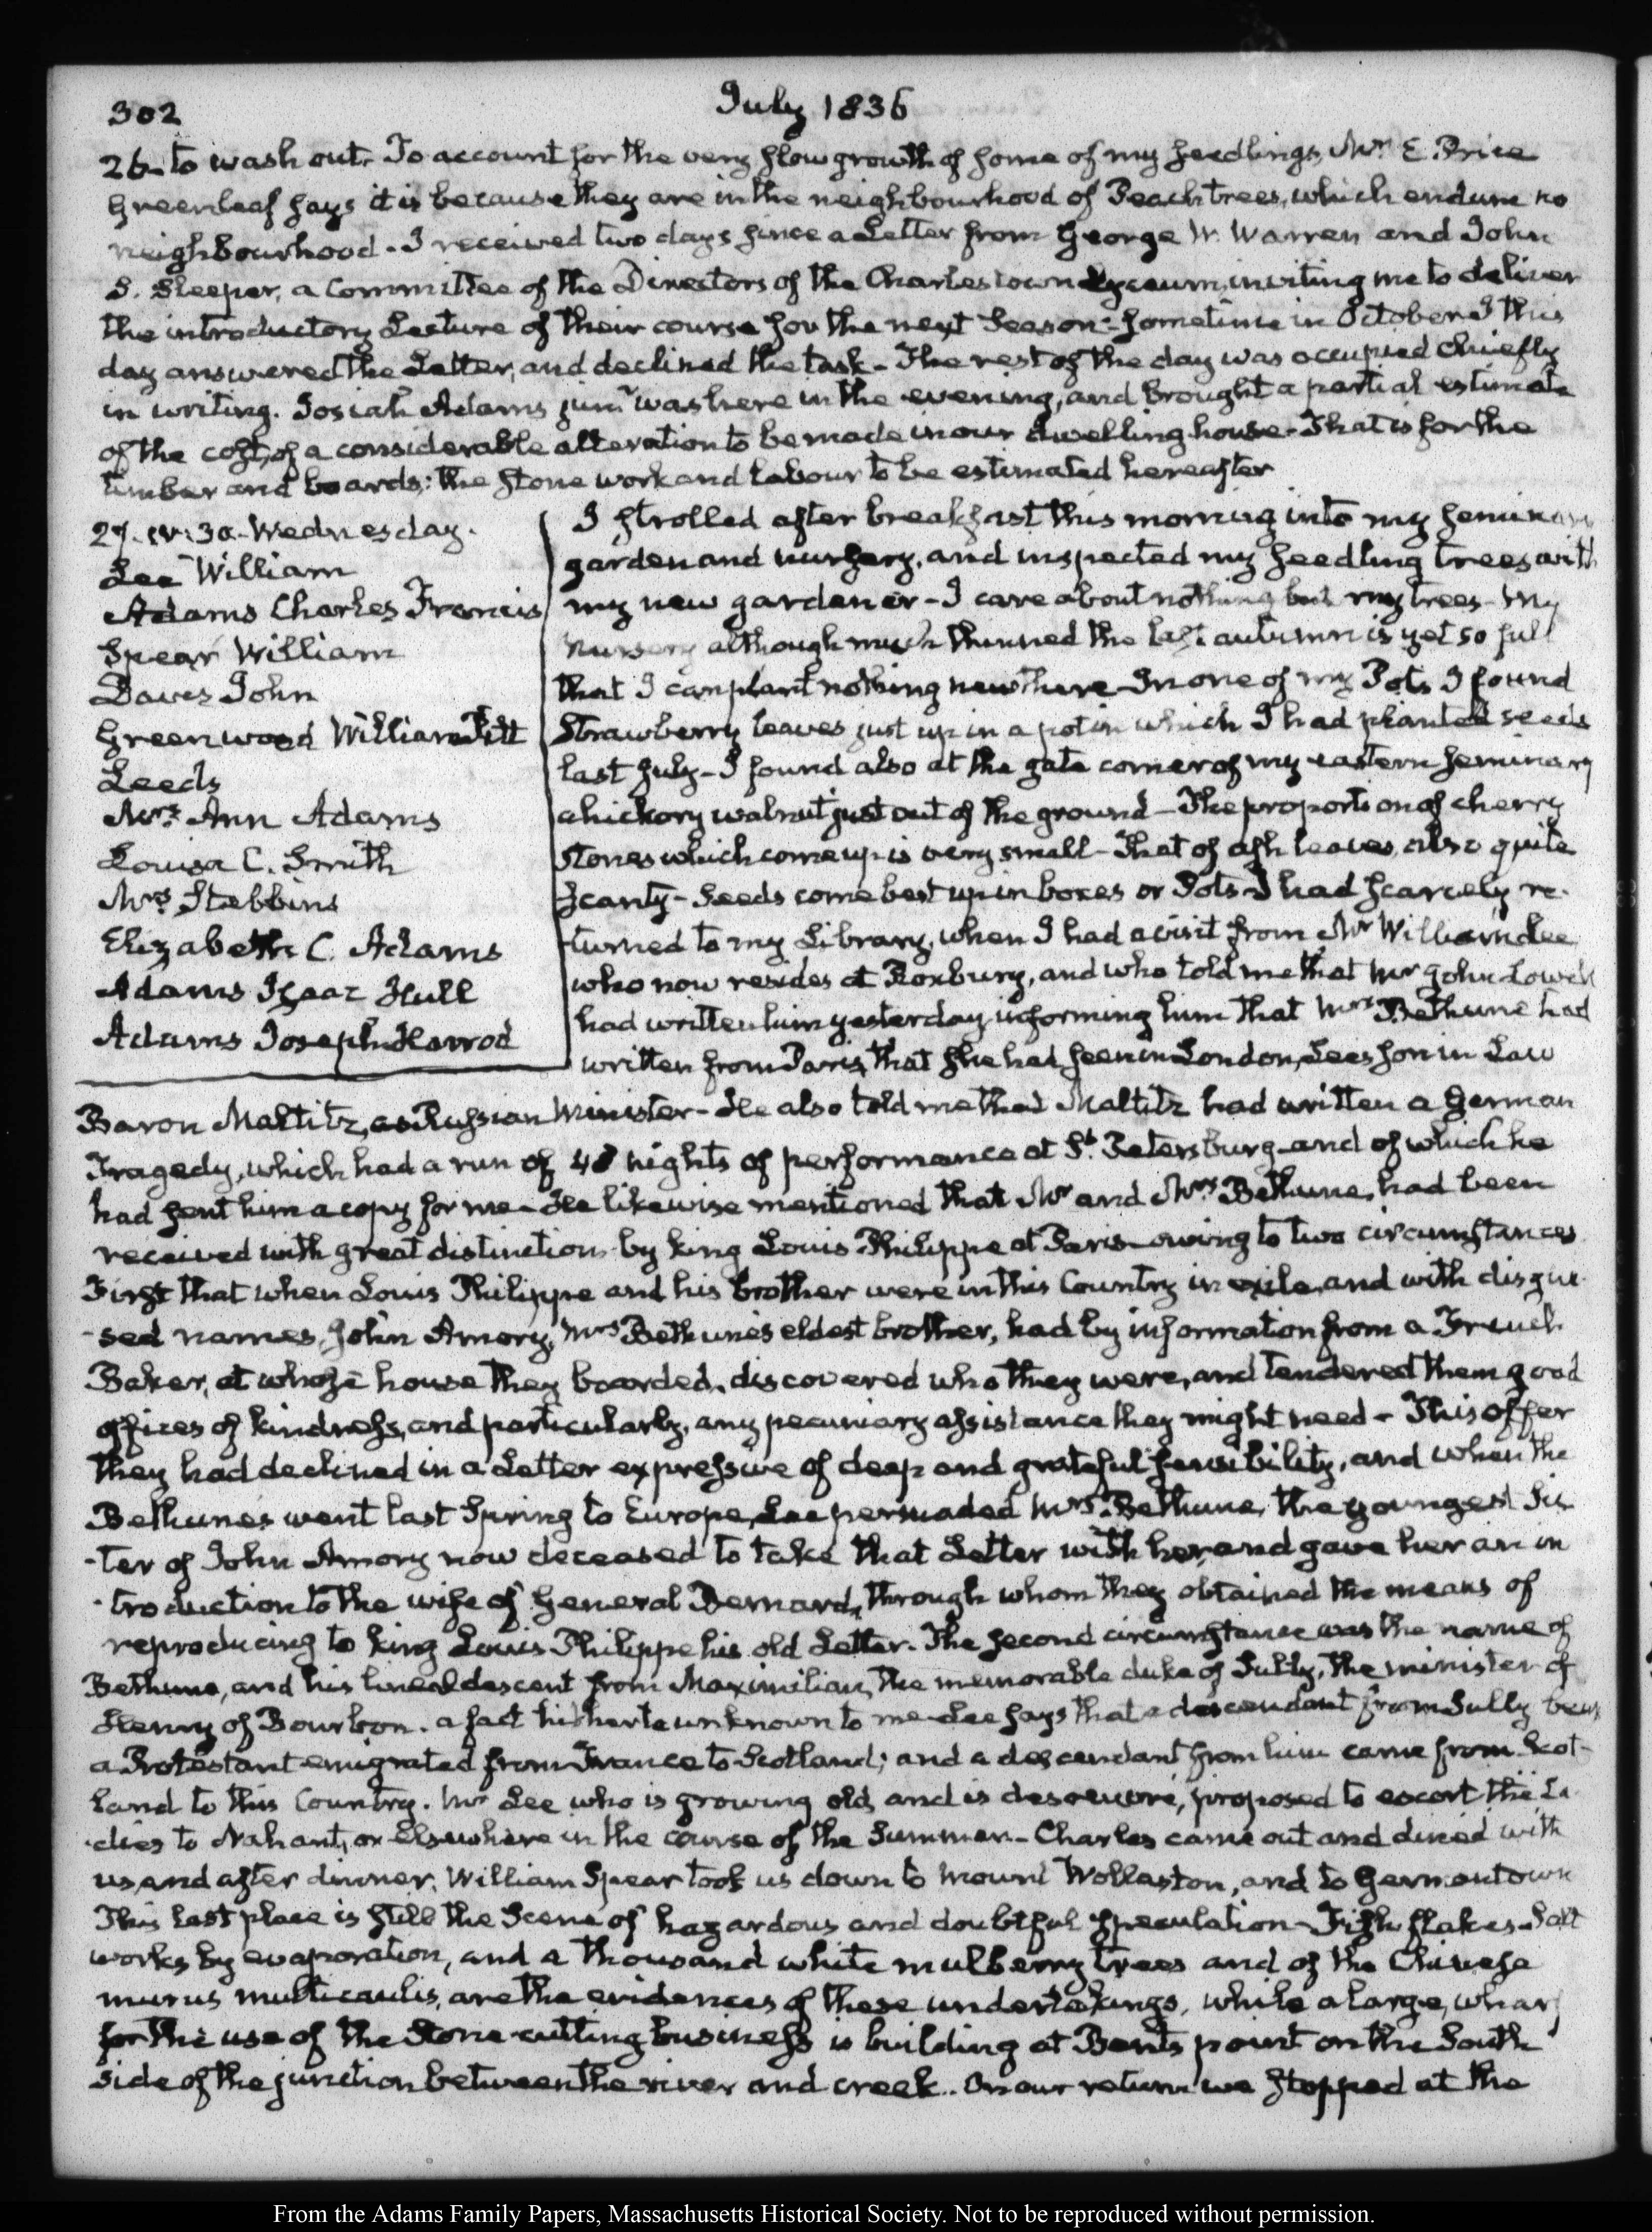 302
July 1836
26. to wash out. To account for the very slow growth of some of my seedlings, Mr. E. Price
Greenleaf says it is because they are in the neighbourhood of Peach trees, which endure no
neighbourhood. I received two days since a Letter from George W. Warren and John
S. Sleeper, a Committee of the Directors of the Charlestown Lyceum, inviting me to deliver
the introductory Lecture of their course for the next Season - sometime in October I this
day answered the Letter, and declined the task - The rest of the day was occupied chiefly
in writing. Josiah Adams junr. was here in the evening, and brought a partial estimate
of the cost, of a considerable alteration to be made in our dwelling house - That is for the
timber and boards: the stone work and labour to be estimated hereafter
27. IV:30. Wednesday.
Lee William
Adams Charles Francis
Spear William
Davis John
Greenwood William Pitt
Leeds
Mrs. Ann Adams
Louisa C. Smith
Mrs. Stebbins
Elizabeth C. Adams
Adams Isaac Hull
Adams Joseph Harrod
I strolled after breakfast this morning into my seminary
garden and nursery, and inspected my seedling trees with
my new gardener - I care about nothing but my trees - My
nursery although much thinned the last autumn is yet so full
that I can plant nothing new there - In one of my Pots I found
Strawberry leaves just up in a pot in which I had planted seeds
last July - I found also at the gate corner of my eastern seminary
a hickory walnut just out of the ground - The proportion of cherry
stones which come up is very small - That of ash leaves also quite
scanty - Seeds come best up in boxes or Pots - I had scarcely re-
turned to my Library, when I had a visit from Mr William Lee
who now resides at Roxbury, and who told me that Mr John Lowell
had written him yesterday informing him that Mrs Bethune had
written from Paris, that she had seen in London, Lees son in Law
Baron Maltitz, as Russian Minister - He also told me that Maltitz had written a German
Tragedy, which had a run of 40 nights of performance at St. Petersburg and of which he
had sent him a copy for me - He likewise mentioned that Mr and Mrs Bethune, had been
received with great distinction by king Louis Philippe at Paris - owing to two circumstances
First that when Louis Philippe and his brother were in this Country in exile, and with disgui-
-sed names, John Amory, Mrs Bethune's eldest brother, had by information from a French
Baker, at whose house they boarded, discovered who they were, and tendered them good
offices of kindness, and particularly, any pecuniary assistance they might need - This offer
they had declined in a Letter expressive of deep and grateful sensibility, and when the
Bethunes went last Spring to Europe, Lee persuaded Mrs. Bethune, the youngest Sis
-ter of John Amory now deceased to take that Letter with her, and gave her an in
-troduction to the wife of General Bernard, through whom they obtained the means of
reproducing to king Louis Philippe his old Letter. The second circumstance was the name of
Bethune, and his lineal descent from Maximilian, the memorable duke of Sully, the minister of
Henry of Bourbon. a fact hitherto unknown to me - Lee says that a descendant from Sully being
a Protestant emigrated from France to Scotland; and a descendant from him came from Scot-
land to this Country. Mr Lee who is growing old, and is desoeuvré, proposed to escort the La-
-dies to Nahant, or elsewhere in the course of the Summer - Charles came out and dined with
us, and after dinner, William Spear took us down to Mount Wollaston, and to Germantown
This last place is still the Scene of hazardous and doubtful speculation - Fish flakes - Salt
works by evaporation, and a thousand white mulberry trees and of the Chinese
murus multicaulis, are the evidences of these undertakings, while a large, wharf
for the use of the Stone cutting business is building at Bents point on the South
side of the junction between the river and creek. On our return we stopped at the
From the Adams Family Papers, Massachusetts Historical Society. Not to be reproduced without permission.